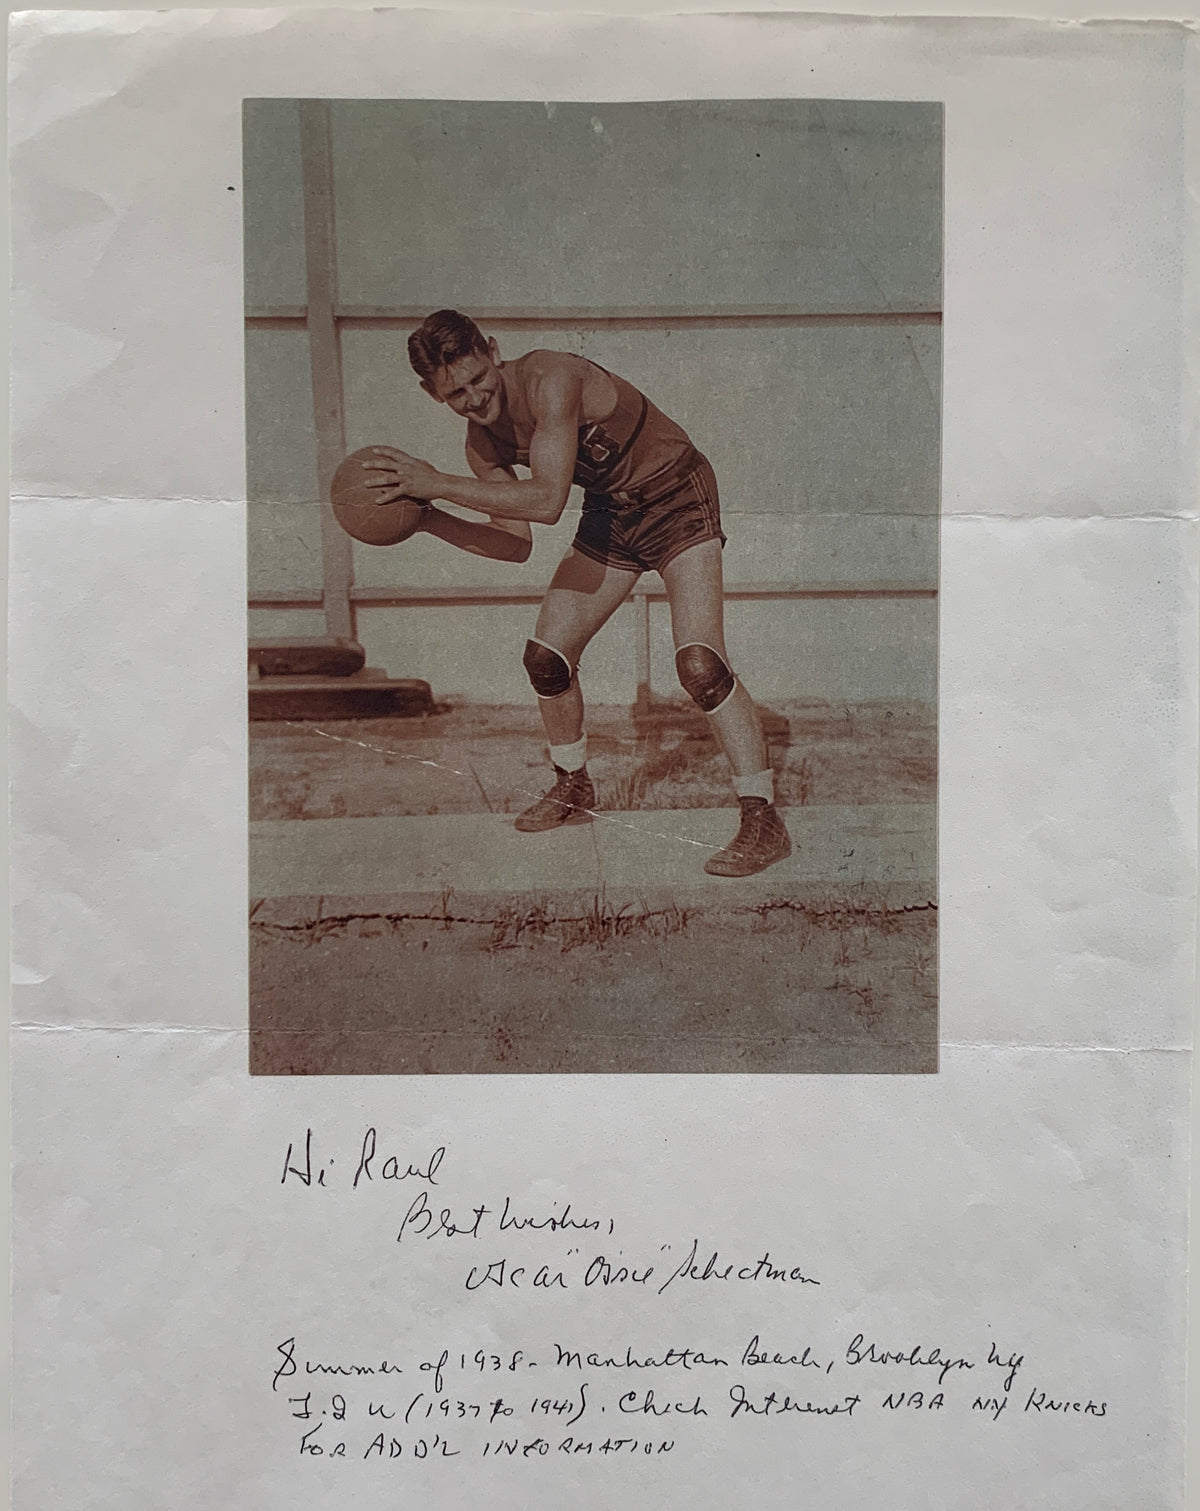 Hi Raul
Best Wishes,
Oscar "Ossie" Schectman
Summer of 1938 - Manhattan Beach, Brooklyn NY
L.I U (1937 to 1941). Check Internet NBA NY KNICKS
FOR ADD'L INFORMATION